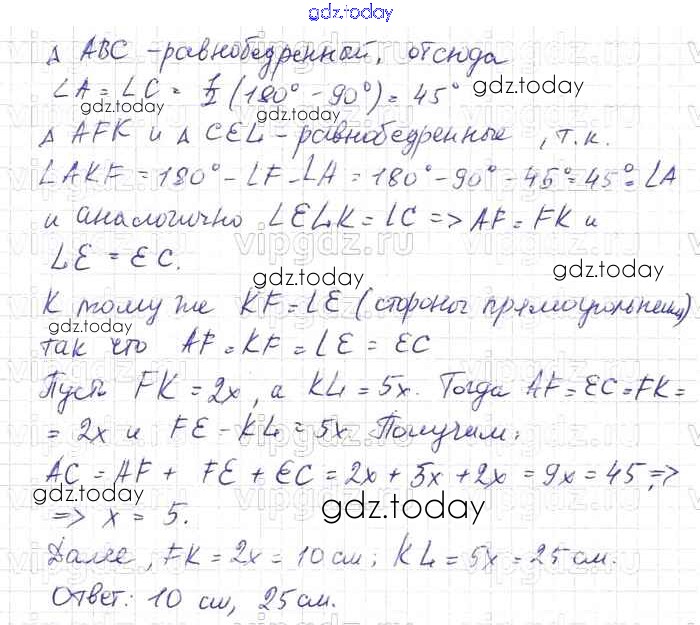 gdz.today
Δ ABC - равнобедренный, отсюда
∠A = ∠C = 1/2 (180° - 90°) = 45°
gdz.today gdz.today
Δ AFK и Δ CEL - равнобедренные, т.к.
∠AKF = 180° - ∠F - ∠A = 180° - 90° - 45° = 45° = ∠A
и аналогично ∠ELK = ∠C => AF = FK и
LE = EC.
gdz.today gdz.today
К тому же KF = LE (стороны прямоугольника)
gdz.today
так что AF = KF = LE = EC
Пусть FK = 2x, а KL = 5x. Тогда AF = EC = FK =
= 2x и FE = KL = 5x. Получим:
AC = AF + FE + EC = 2x + 5x + 2x = 9x = 45 =>
gdz.today gdz.today
=> x = 5.
Далее, FK = 2x = 10 см; KL = 5x = 25 см.
Ответ: 10 см, 25 см.